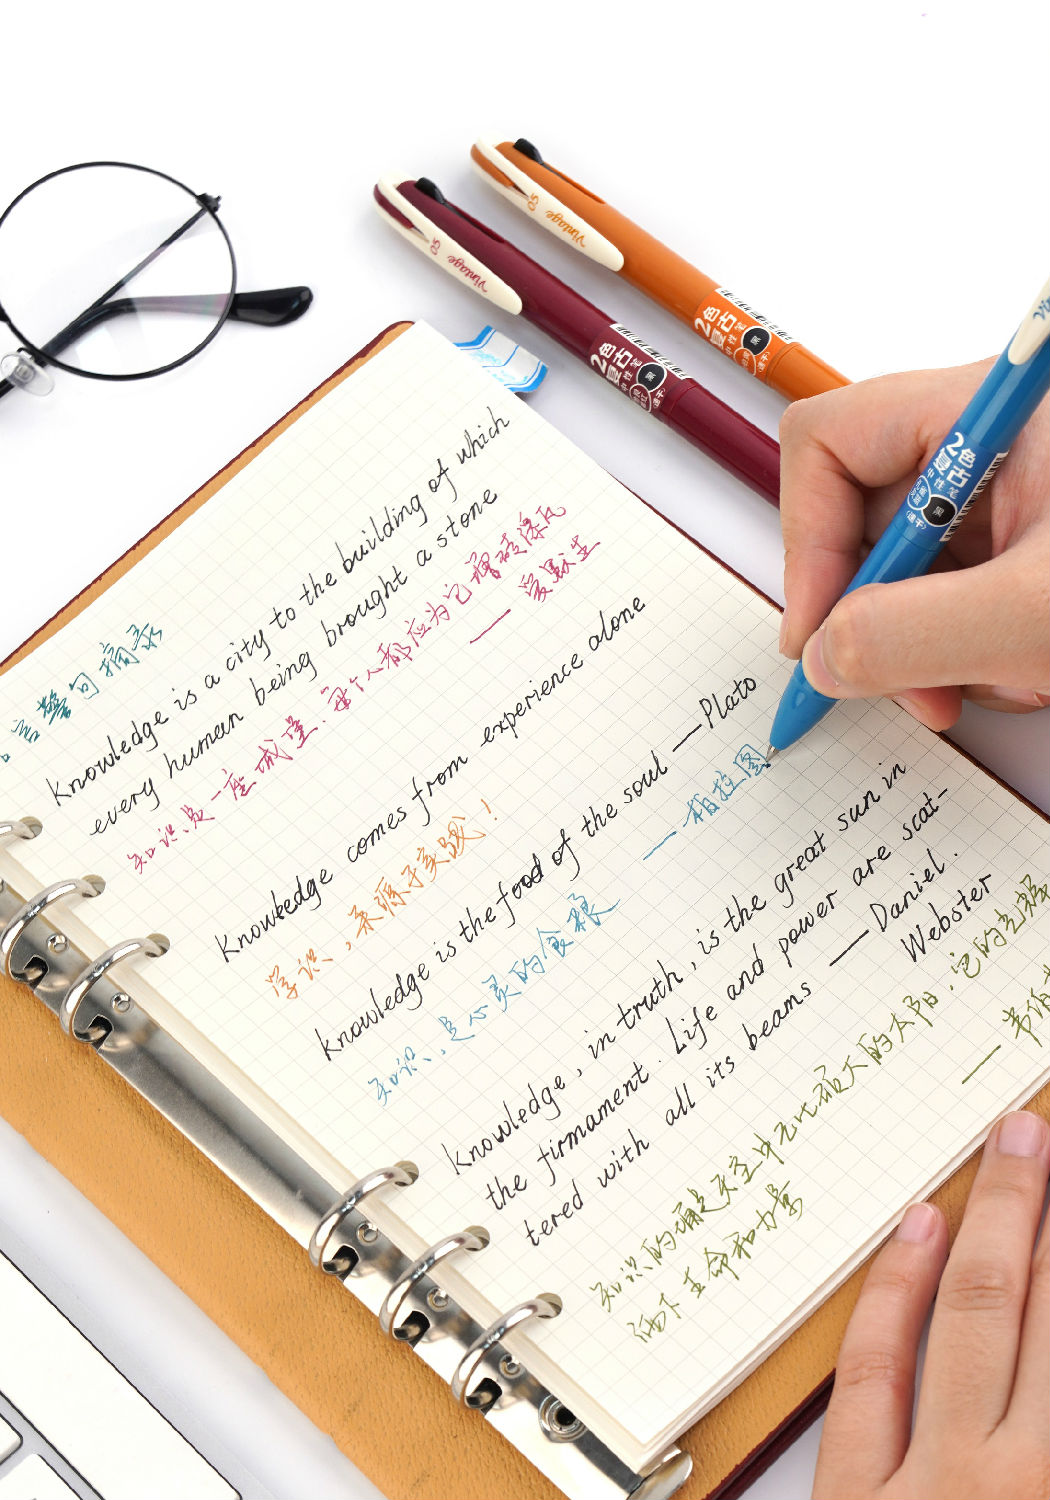 Vintage 0.5
Vintage 0.5
2色
复古
中性笔
黑
(速干)
2色
复古
中性笔
黑
(速干)
2色
复古
中性笔
黑
(速干)
言警句摘录
Knowledge is a city to the building of which
every human being brought a stone
知识是一座城堡,每个人都应为它增砖添瓦
—— 爱默生
Knowledge comes from experience alone
学识,来源于实践!
Knowledge is the food of the soul —Plato
知识,是心灵的食粮 —柏拉图
Knowledge, in truth, is the great sun in
the firmament. Life and power are scat-
tered with all its beams —Daniel.
Webster
知识的确是天空中无比强大的太阳,它的光辉
洒下生命和力量